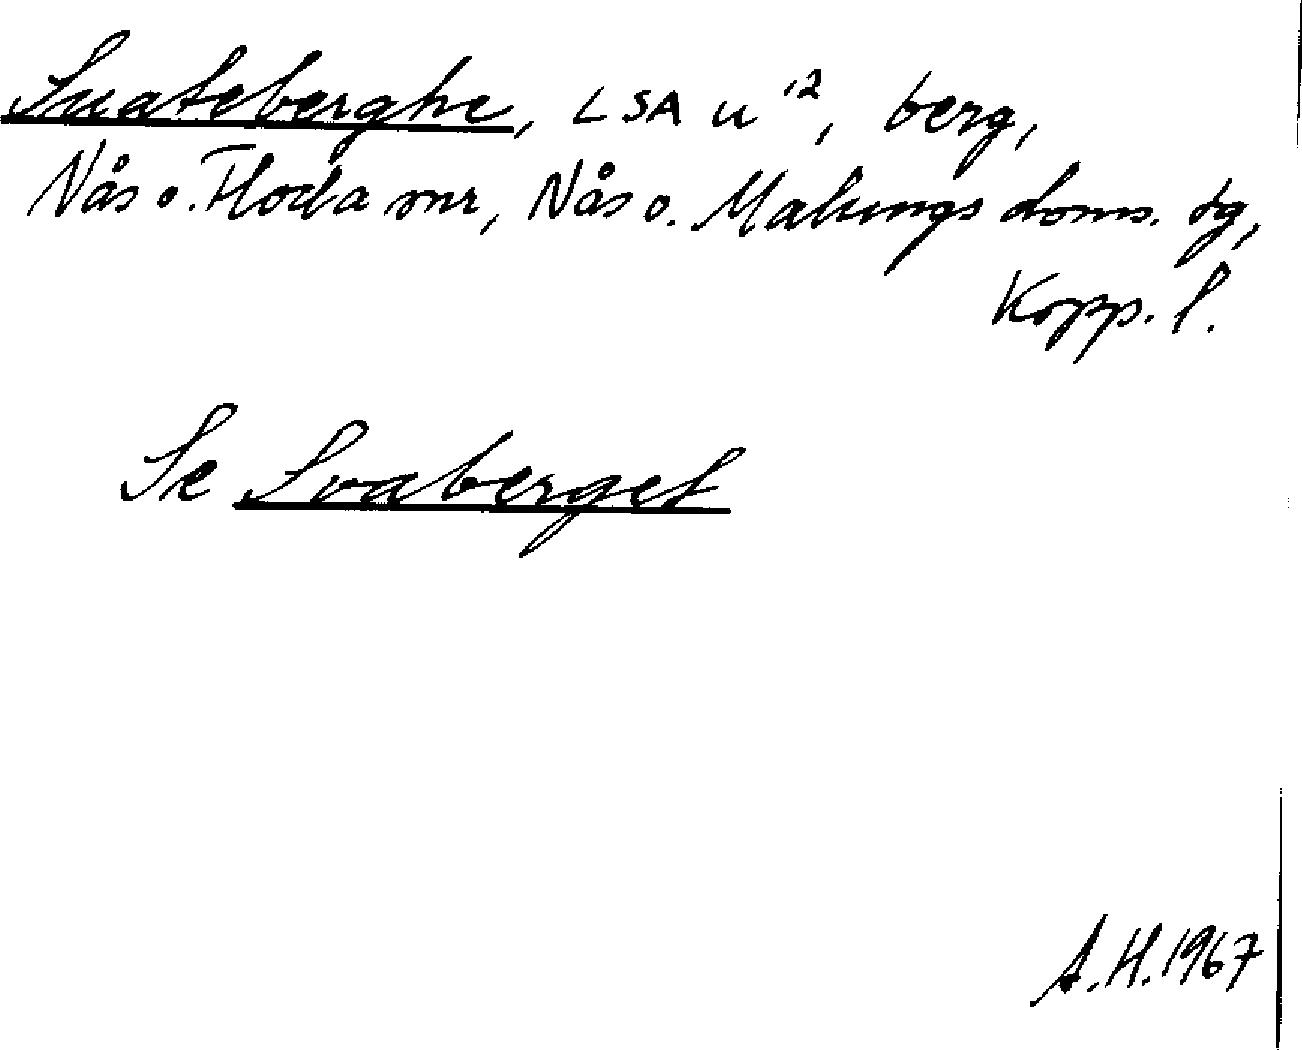 Suateberghe, LSA u '2, berg,
Nås o. Floda snr, Nås o. Malungs doms. tg,
Kopp. l.
Se Svaberget
A.H. 1967